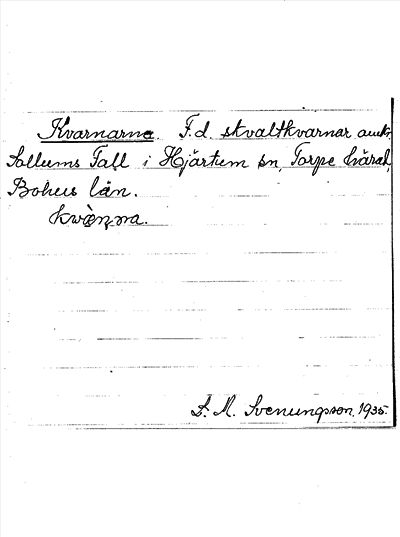 Kvarnarna. F.d. skvaltkvarnar
Sollums Tall i Hjärtum sn, Torpe härad,
Bohus län.
S. M. Svenungsson. 1935.